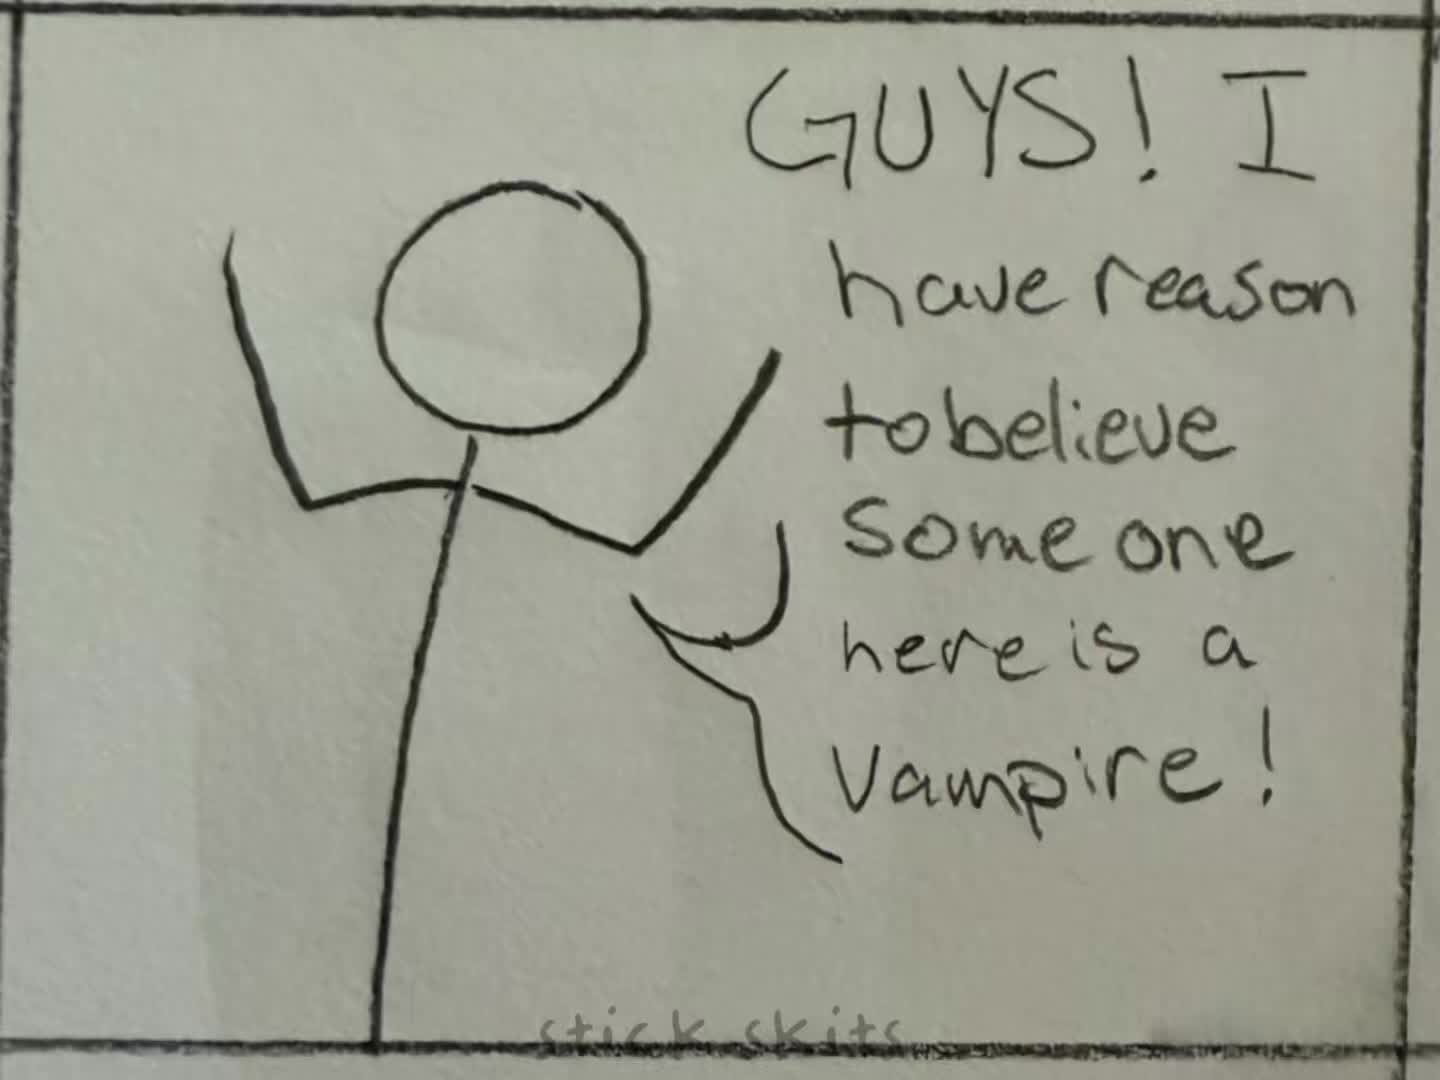 GUYS! I
have reason
to believe
Some one
here is a
Vampire!
stick skits